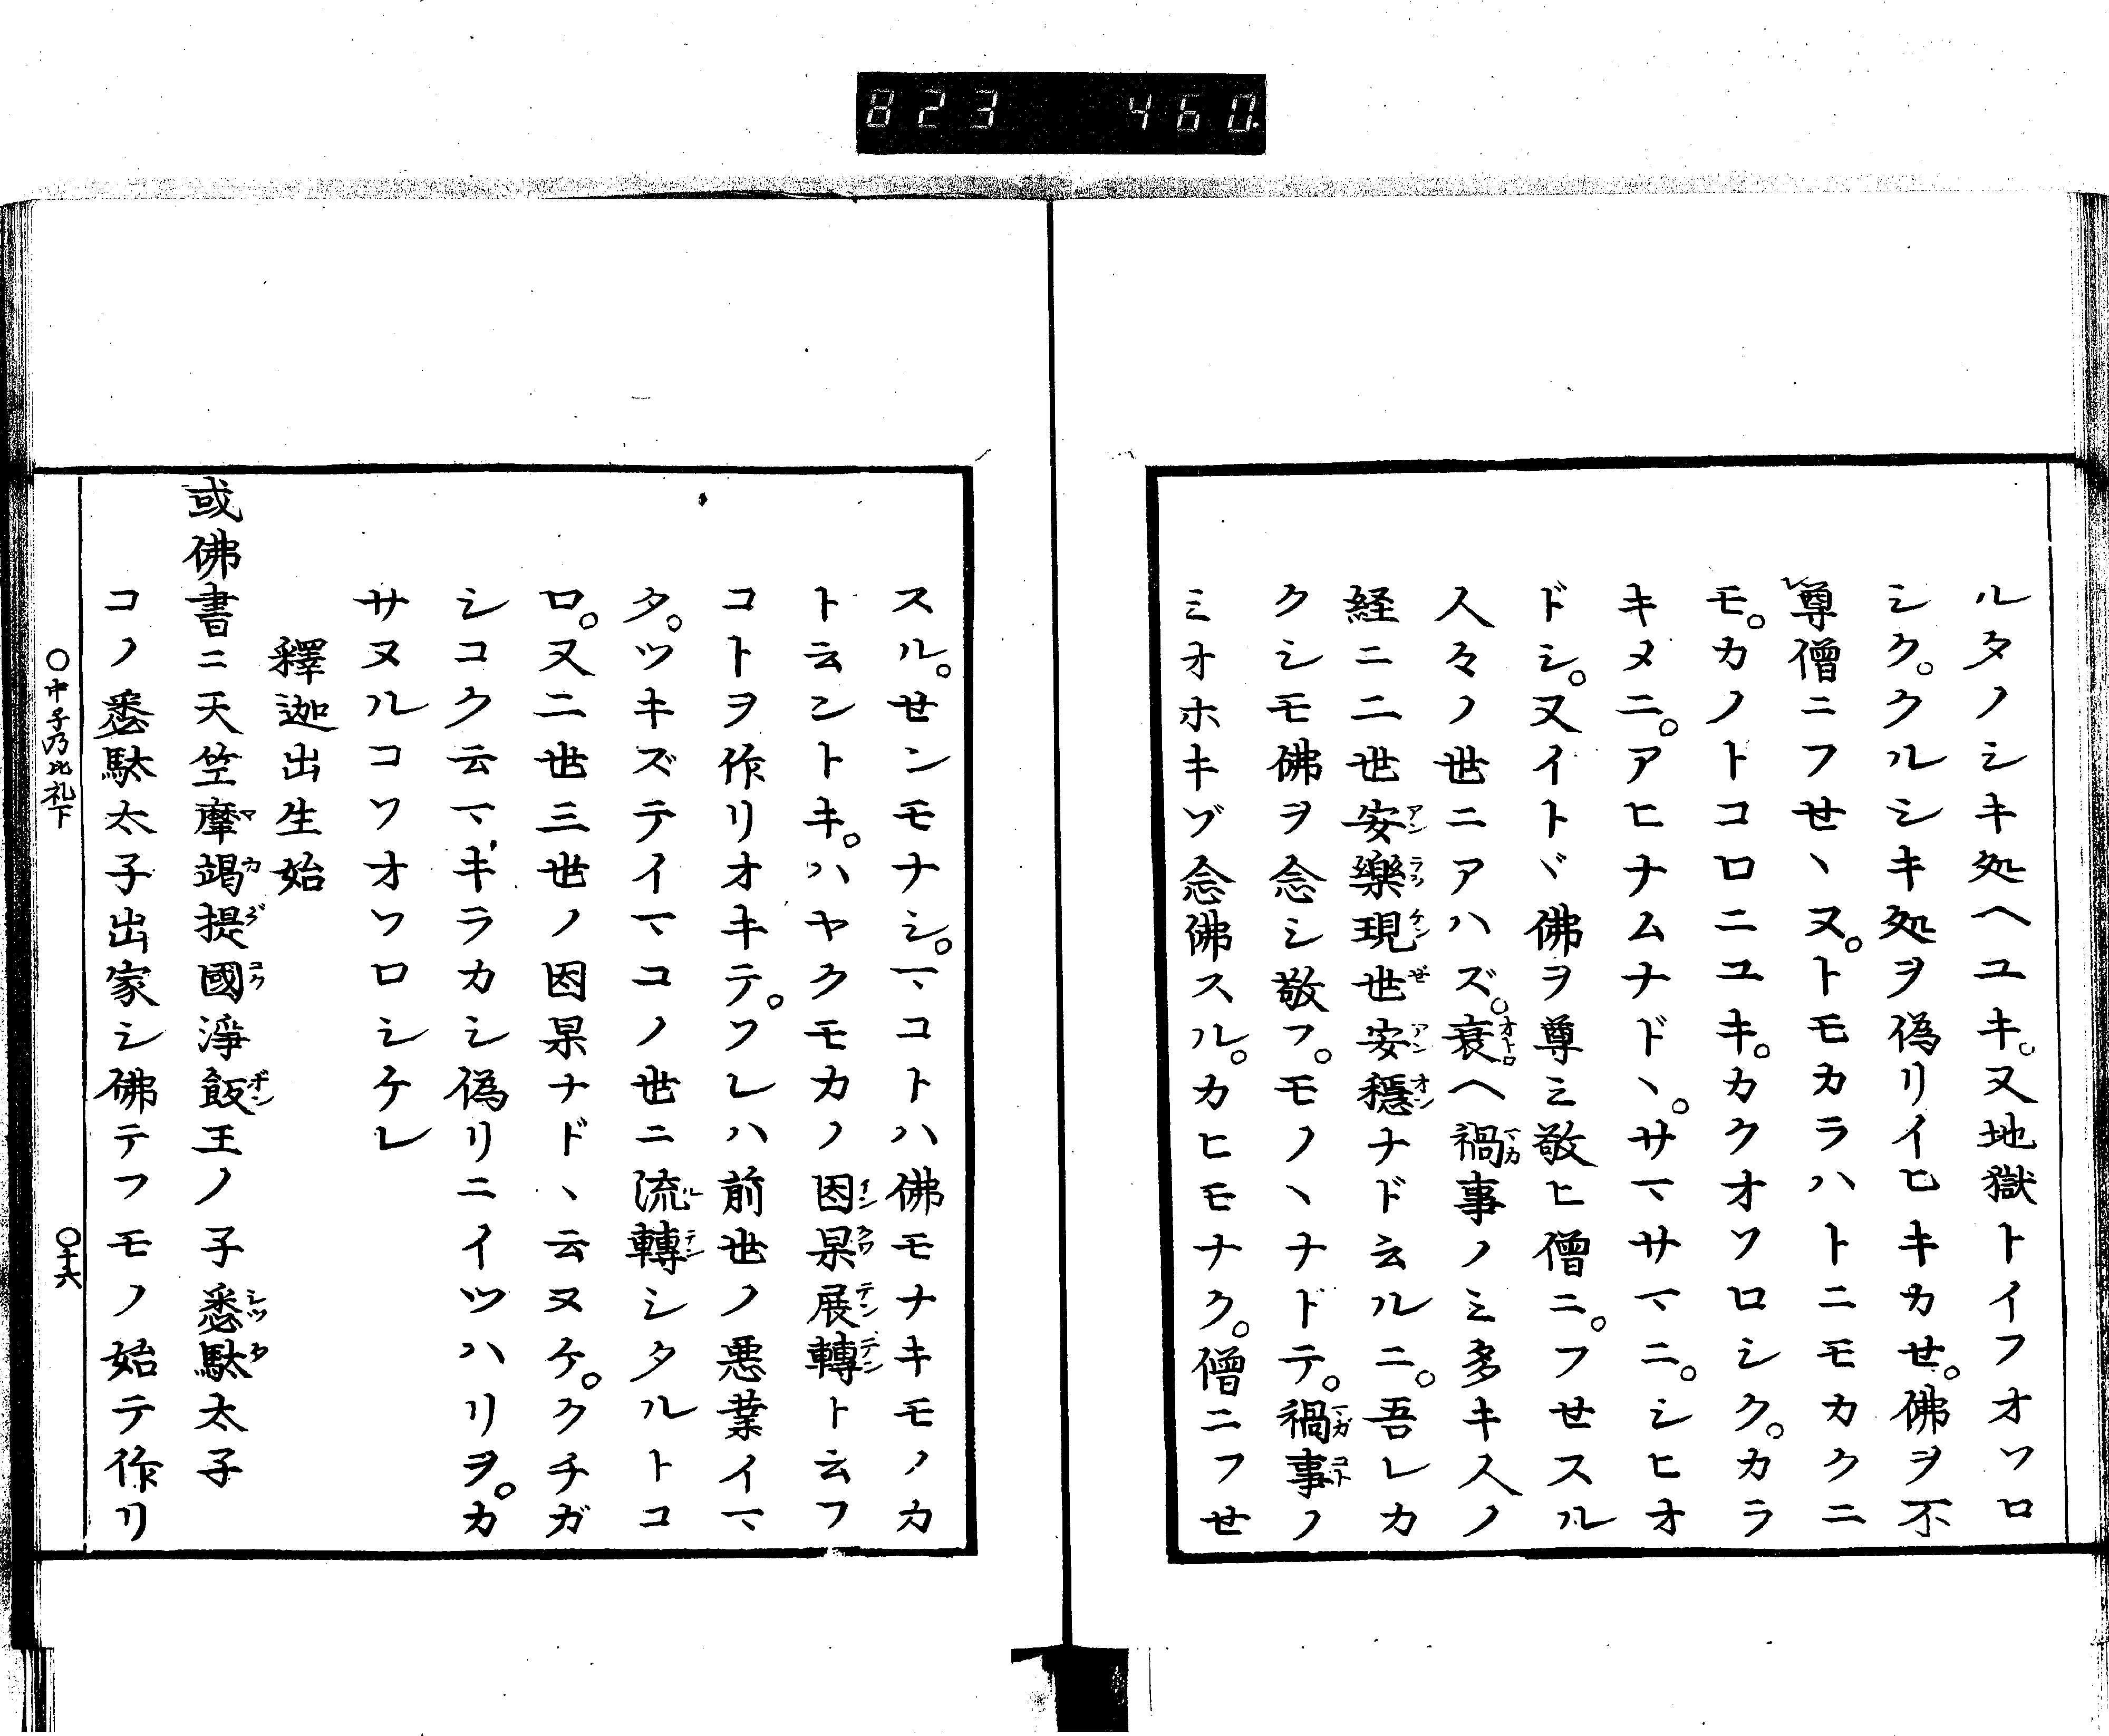 823 460.
ルタノシキ処ヘユキ。又地獄トイフオソロ
シク。クルシキ処ヲ偽リイヒキカせ。佛ヲ不
レ尊僧ニフせヽヌ。トモカラハトニモカクニ
モ。カノトコロニユキ。カクオソロシク。カラ
キメニ。アヒナムナドヽ。サマサマニ。シヒオ
ドシ。又イトヾ佛ヲ尊ミ敬ヒ僧ニ。フせスル
人々ノ世ニアハズ。衰ヘ禍事ノミ多キ人ノ
経ニ二世安樂現世安穩ナド云ルニ。吾レカ
クシモ佛ヲ念シ敬フ。モノヽナドテ。禍事ノ
ミオホキゾ念佛スル。カヒモナク。僧ニフせ
スル。せンモナシ。マコトハ佛モナキモノカ
ト云ントキ。ハヤクモカノ因果展轉ト云フ
コトヲ作リオキテ。ソレハ前世ノ悪業イマ
タ。ツキズテイマコノ世ニ流轉シタルトコ
ロ。又二世三世ノ因果ナドヽ云ヌケ。クチガ
シコク云マギラカシ偽リニイツハリヲ。カ
サヌルコソオソロシケレ
釋迦出生始
或佛書ニ天竺摩竭提國淨飯王ノ子悉駄太子
コノ悉駄太子出家シ佛テフモノ始テ作リ
○中子乃比礼下 ○十六